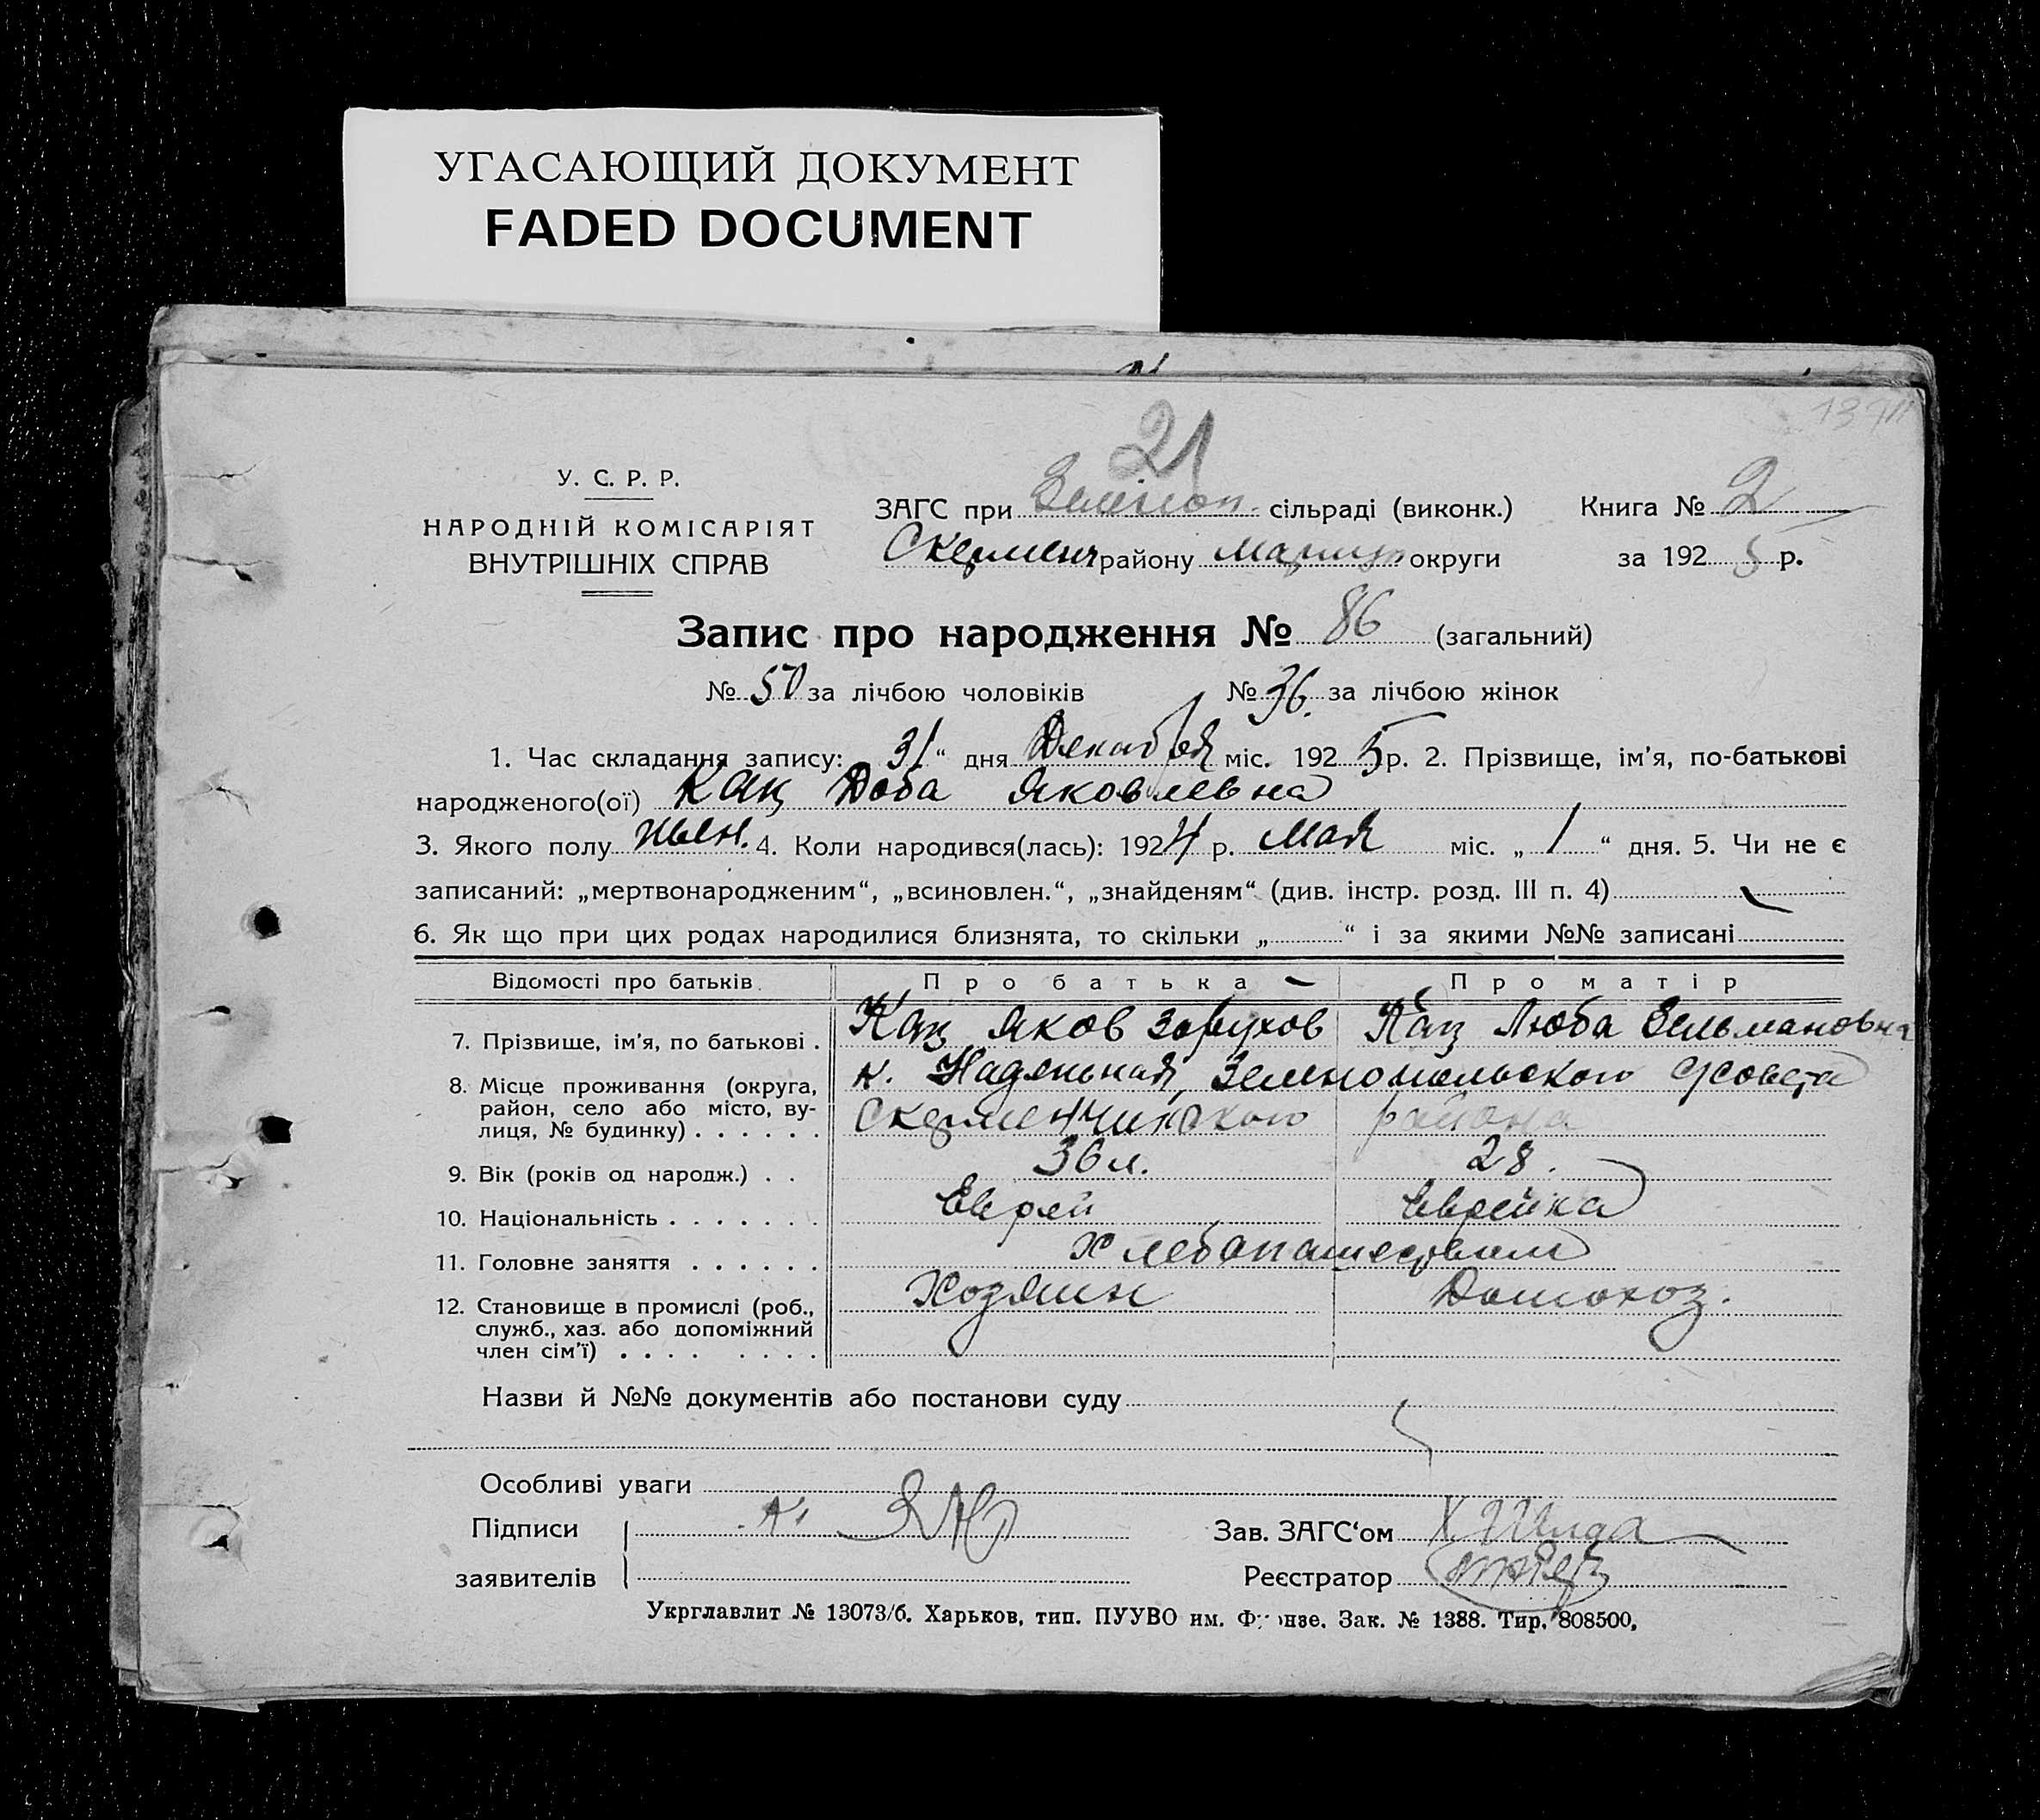 УГАСАЮЩИЙ ДОКУМЕНТ
FADED DOCUMENT
21
У. С. Р. Р.
НАРОДНІЙ КОМІСАРІЯТ
ВНУТРІШНІХ СПРАВ
ЗАГС при сільраді (виконк.)
Книга № 2
району округи
за 1925 р.
Запис про народження № 86 (загальний)
№ 50 за лічбою чоловіків
№ 36. за лічбою жінок
1. Час складання запису: 31 “ дня Декабря міс. 1925 р. 2. Прізвище, ім'я, по-батькові
народженого(ої) Кац Доба Яковлевна
3. Якого полу жен. 4. Коли народився(лась): 1924 р. Мая міс. „ 1 “ дня. 5. Чи не є
записаний: „мертвонародженим“, „всиновлен.“, „знайденям“ (див. інстр. розд. III п. 4)
6. Як що при цих родах народилися близнята, то скільки „ “ і за якими №№ записані
Відомості про батьків. Про батька Про матір
7. Прізвище, ім'я, по батькові . Кац Яков Кац Люба Зельмановна
8. Місце проживання (округа, к. Надежная, Зеленопольского с/совета
район, село або місто, ву-
лиця, № будинку) . . . . . . района
9. Вік (років од народж.) . . 36 л. 28.
10. Національність . . . . . . . Еврей Еврейка
11. Головне заняття . . . . . . Хлебопашеством
12. Становище в промислі (роб., Хозяин Домохоз.
служб., хаз. або допоміжний
член сім'ї) . . . . . . . .
Назви й №№ документів або постанови суду
Особливі уваги
Підписи
Зав. ЗАГС‘ом
заявителів
Реєстратор
Укрглавлит № 13073/б. Харьков, тип. ПУУВО им. Фрунзе. Зак. № 1388. Тир. 808500,